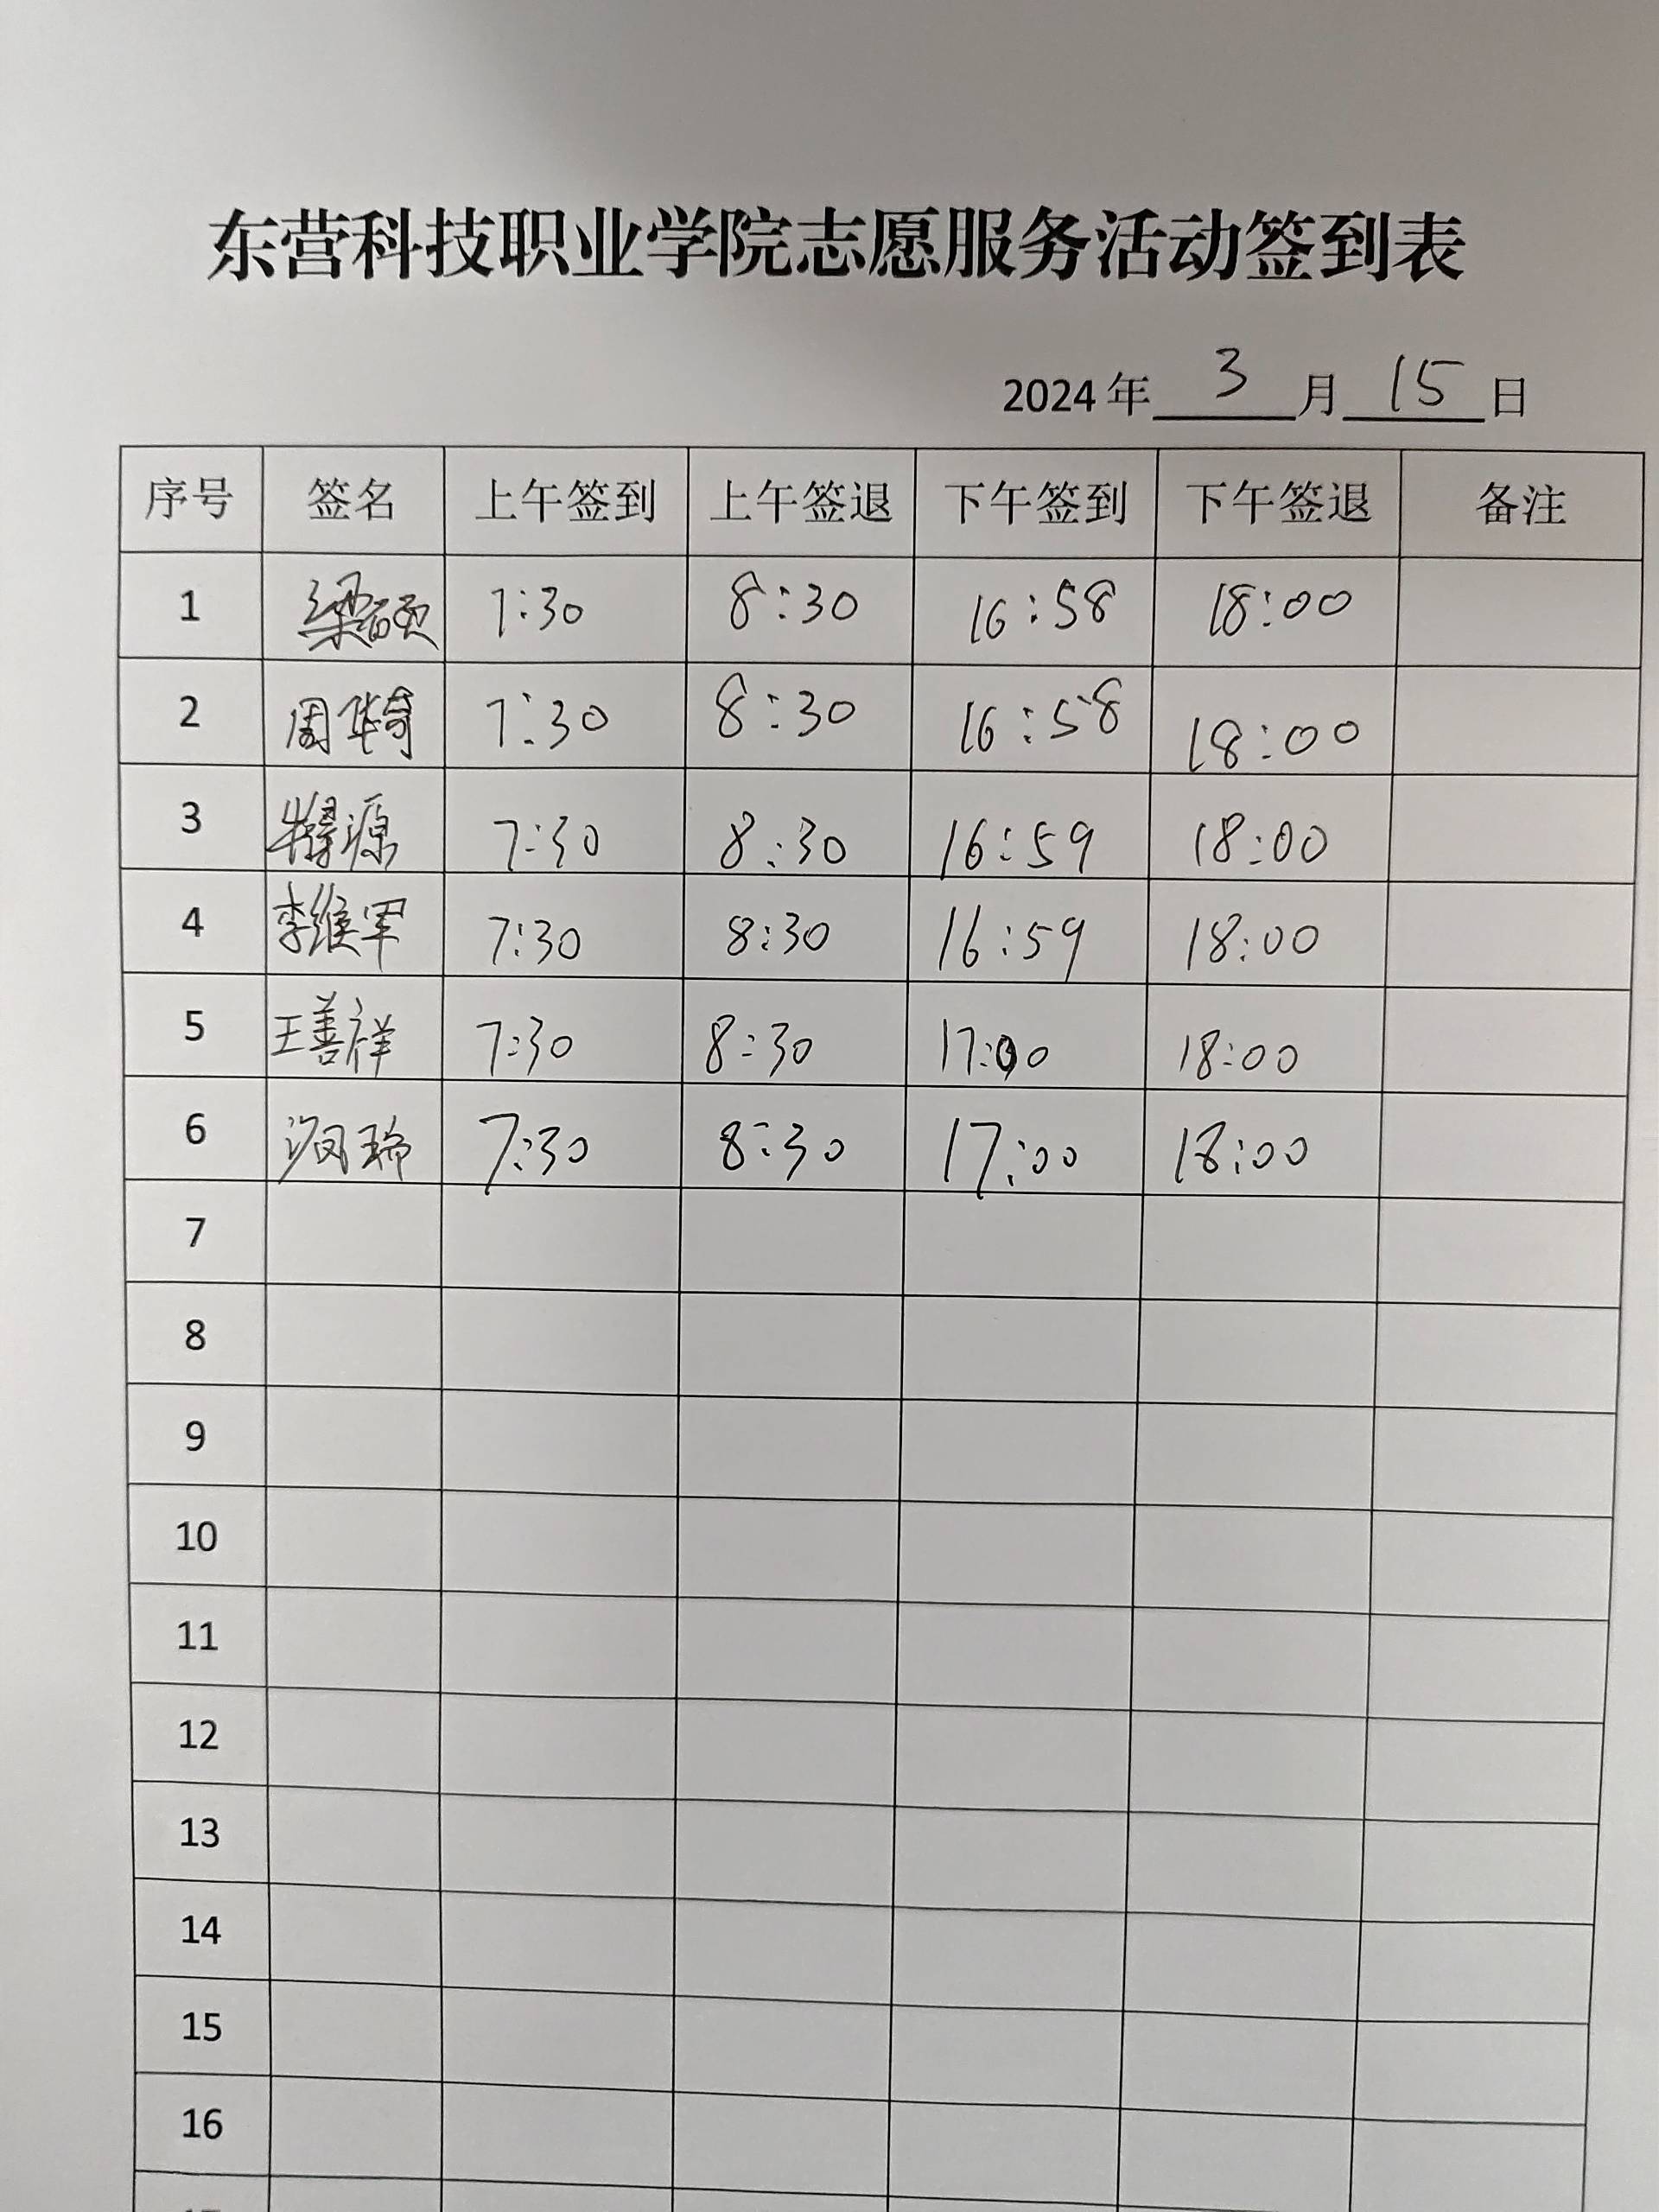 东营科技职业学院志愿服务活动签到表
2024年 3 月 15 日
序号 签名 上午签到 上午签退 下午签到 下午签退 备注
1 梁硕 7:30 8:30 16:58 18:00
2 周华奇 7:30 8:30 16:58 18:00
3 源 7:30 8:30 16:59 18:00
4 李维军 7:30 8:30 16:59 18:00
5 王善祥 7:30 8:30 17:00 18:00
6 7:30 8:30 17:00 18:00
7
8
9
10
11
12
13
14
15
16